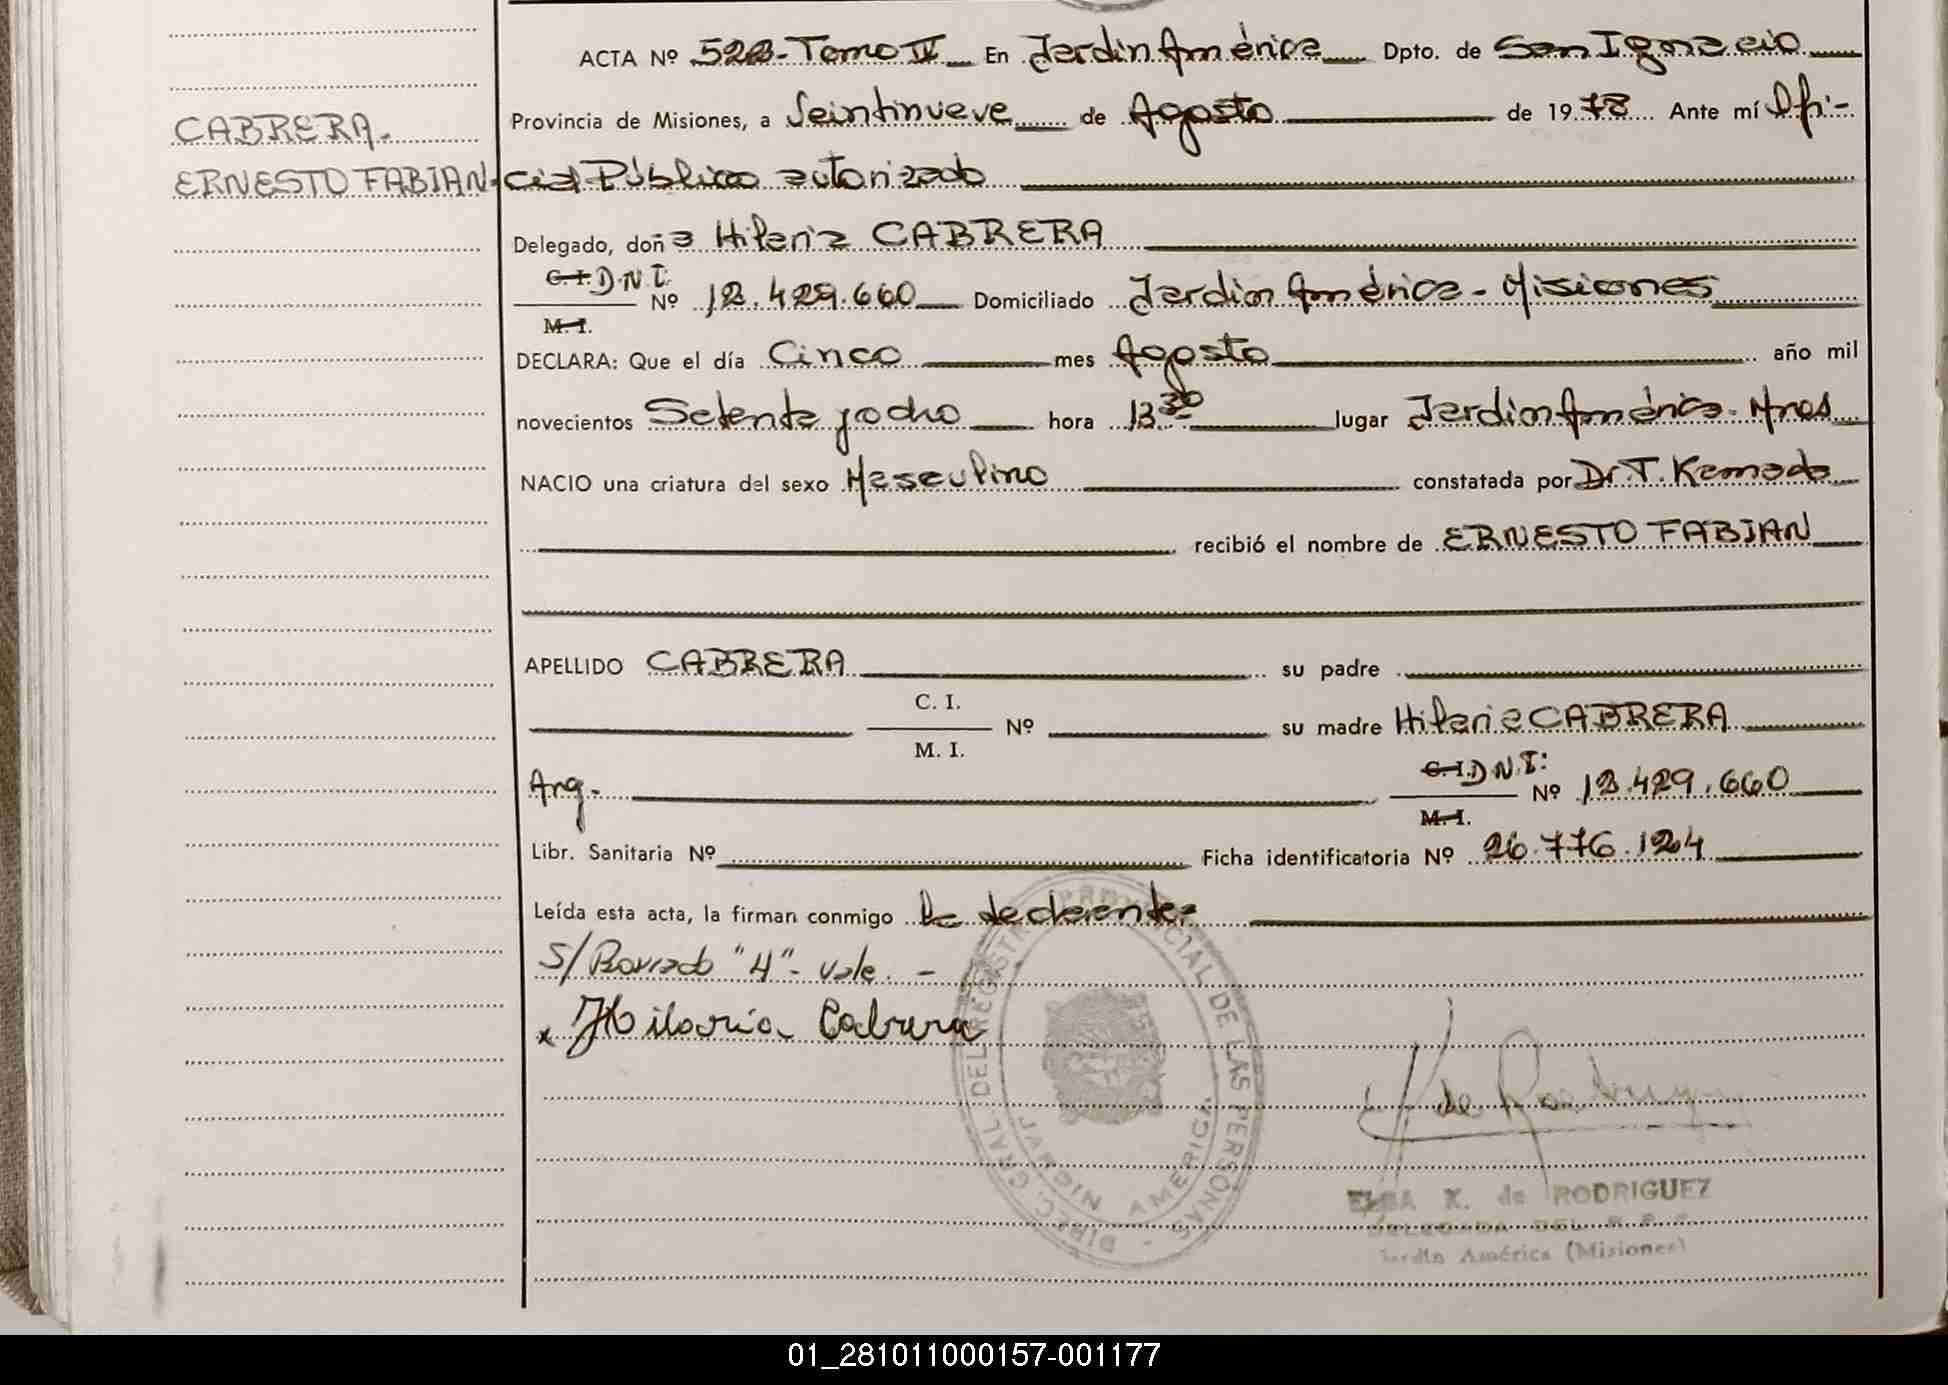 ACTA Nº 522-Tomo II En Jardín América Dpto. de San Ignacio
CABRERA.
Provincia de Misiones, a Veintinueve de Agosto de 1978 Ante mí Ofi-
ERNESTO FABIAN.
cial Público autorizado
Delegado, doña Hilaria CABRERA
C.I. D.N.I. Nº 12.429.660 Domiciliado Jardín América - Misiones
M.I.
DECLARA: Que el día Cinco mes Agosto año mil
novecientos Setenta y ocho hora 13 30 lugar Jardín América - Mnes
NACIO una criatura del sexo Masculino constatada por Dr. T. Kamada
recibió el nombre de ERNESTO FABIAN
APELLIDO CABRERA su padre
C. I.
M. I. Nº su madre Hilaria CABRERA
Arg. C.I. D.N.I: Nº 12.429.660
M.I.
Libr. Sanitaria Nº Ficha identificatoria Nº 26.776.124
Leída esta acta, la firman conmigo la declarante
S/ Borrado "4" - vale. -
x Hilaria Cabrera
DIREC. GRAL. DEL REGISTRO PROVINCIAL DE LAS PERSONAS -
JARDIN AMERICA
de Rodriguez
ELBA K. de RODRIGUEZ
DELEGADA DEL R.P.P.
Jardín América (Misiones)
01_281011000157-001177